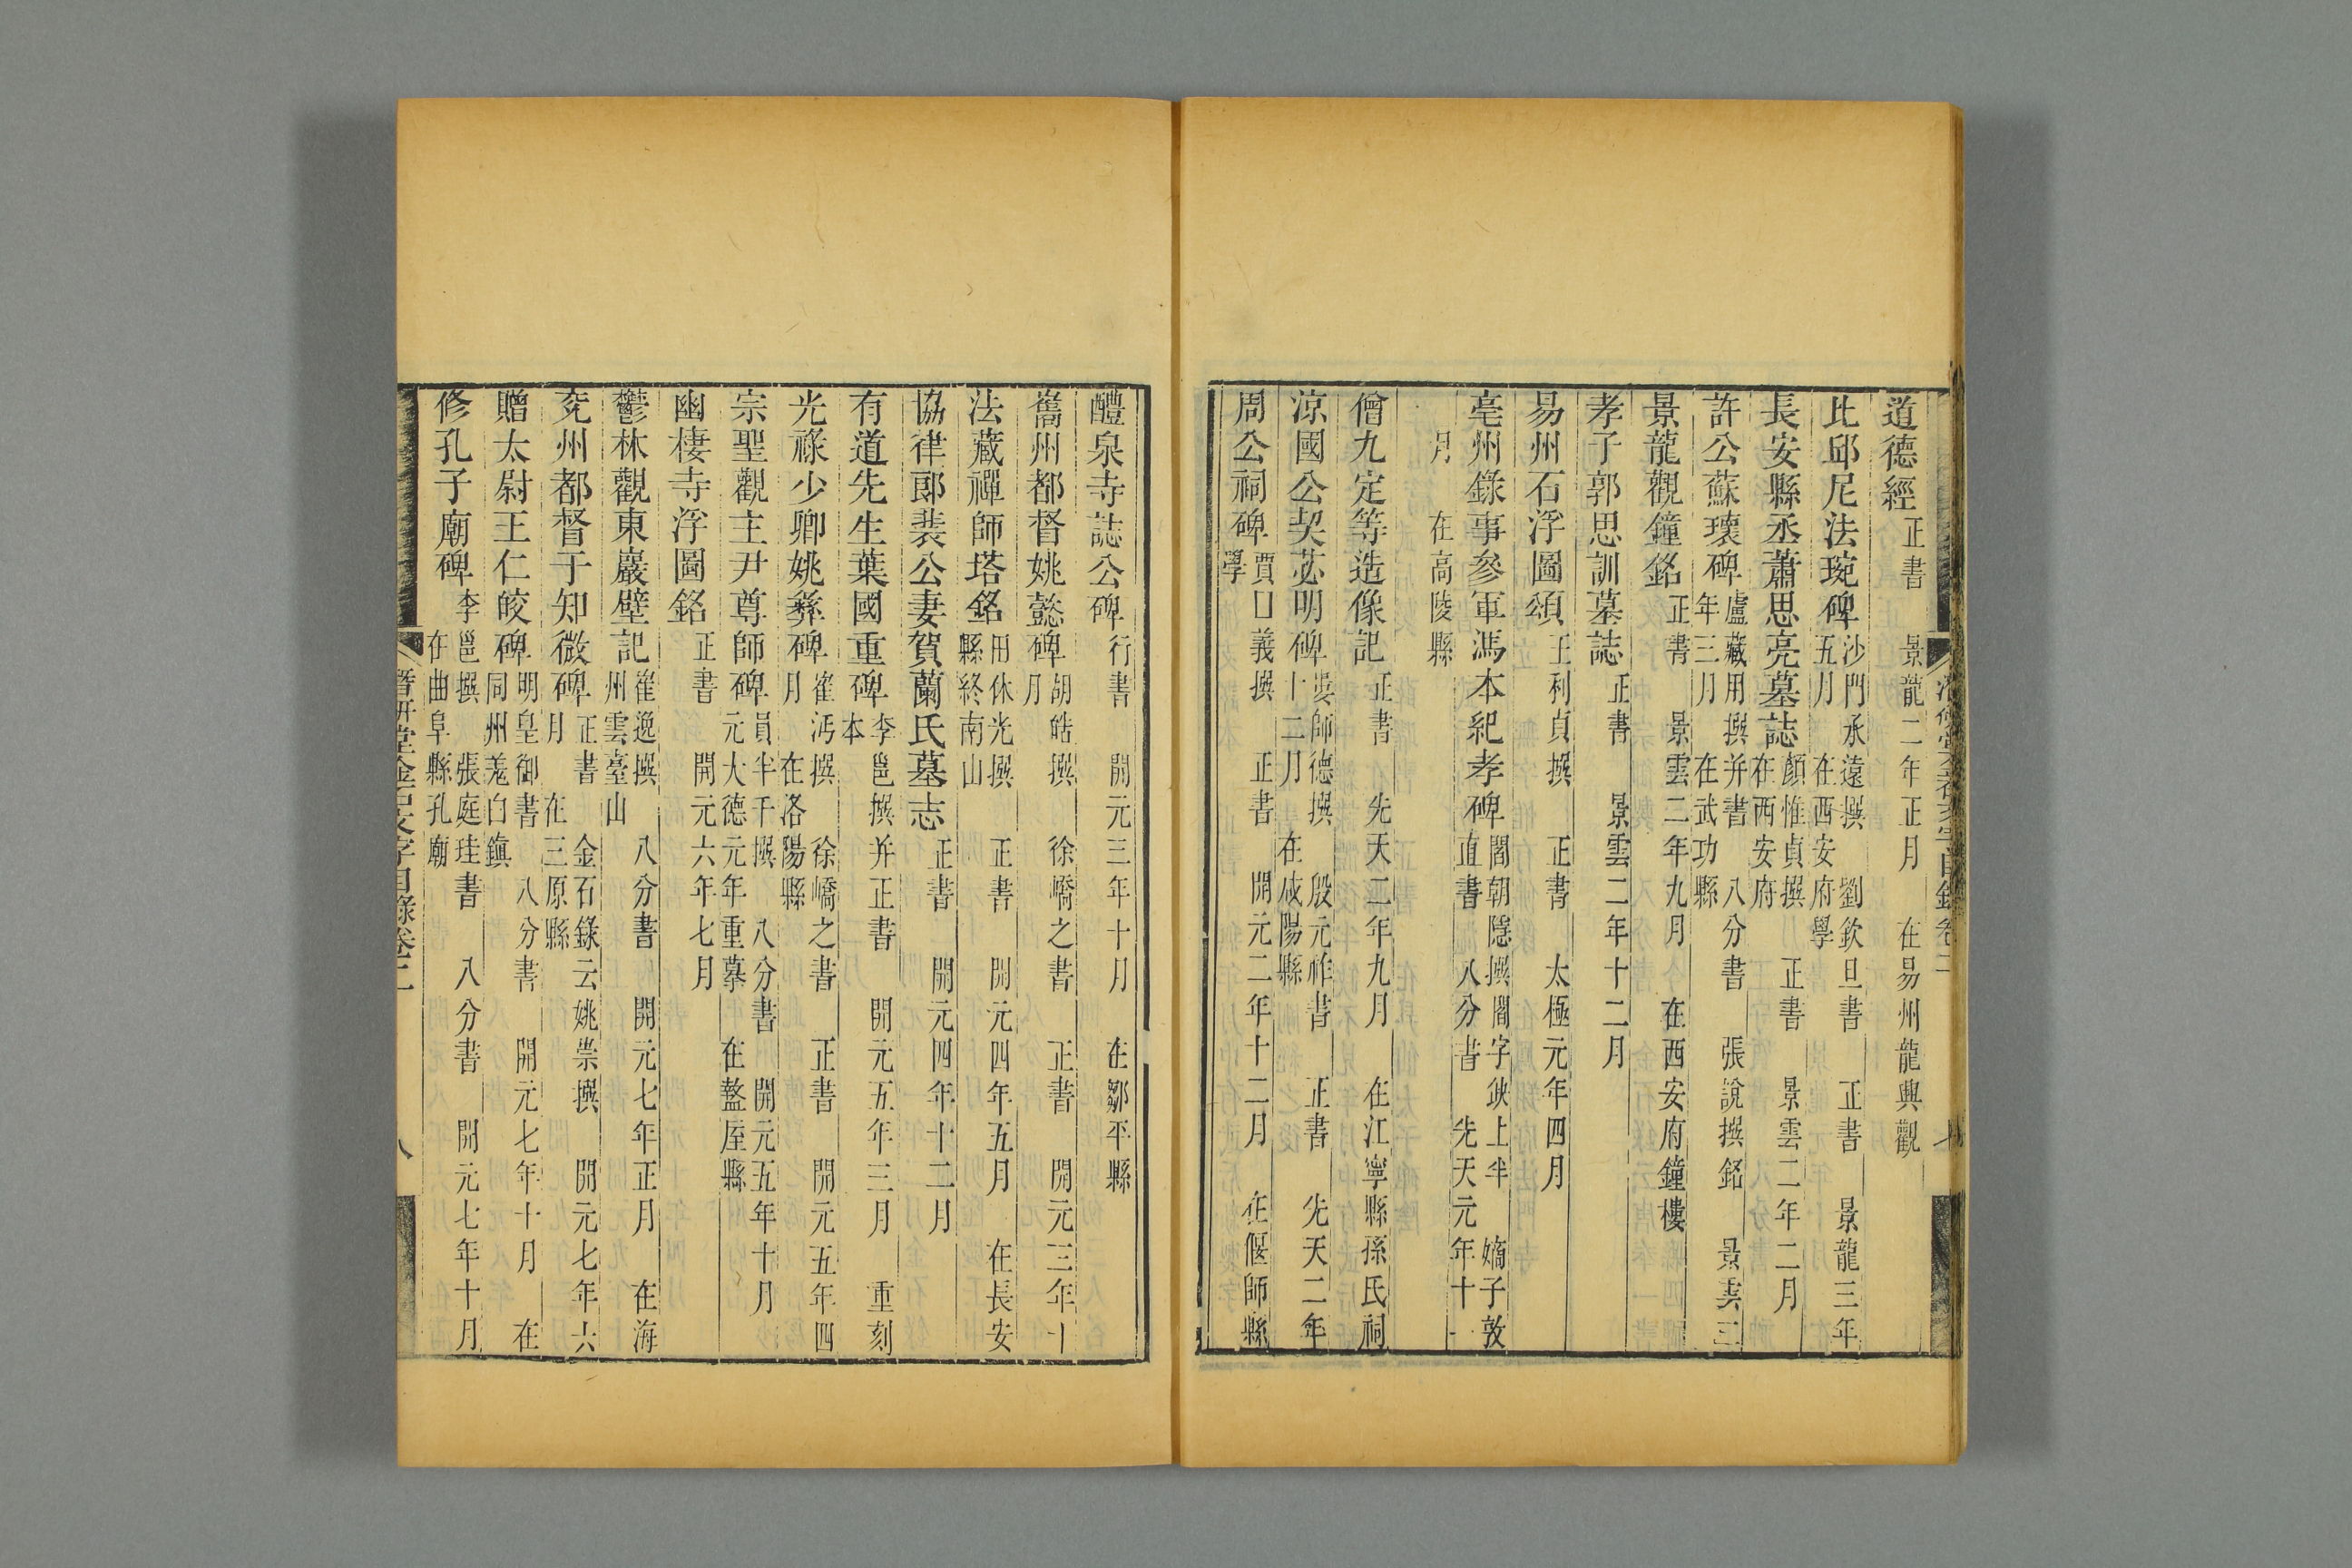 道德經 正書 景龍二年正月 在易州龍興觀
比邱尼法琬碑 沙門承遠撰 劉欽旦書 正書 景龍三年五月 在西安府學
長安縣丞蕭思亮墓誌 顏惟貞撰 正書 景雲二年二月 在西安府
許公蘇瓌碑 盧藏用撰并書 八分書 張說撰銘 景雲三年三月 在武功縣
景龍觀鐘銘 正書 景雲二年九月 在西安府鐘樓
孝子郭思訓墓誌 正書 景雲二年十二月
易州石浮圖頌 王利貞撰 正書 太極元年四月
亳州錄事參軍馮本紀孝碑 閻朝隱撰閻字缺上半 嫡子敦直書 八分書 先天元年十
月 在高陵縣
僧九定等造像記 正書 先天二年九月 在江寧縣孫氏祠
涼國公契苾明碑 婁師德撰 殷元祚書 正書 先天二年十二月 在咸陽縣
周公祠碑 賈口義撰 正書 開元二年十二月 在偃師縣學
醴泉寺誌公碑 行書 開元三年十月 在鄒平縣
巂州都督姚懿碑 胡皓撰 徐嶠之書 正書 開元三年十月
法藏禪師塔銘 田休光撰 正書 開元四年五月 在長安縣終南山
協律郎裴公妻賀蘭氏墓志 正書 開元四年十二月
有道先生葉國重碑 李邕撰并正書 開元五年三月 重刻本
光祿少卿姚彝碑 崔沔撰 徐嶠之書 正書 開元五年四月 在洛陽縣
宗聖觀主尹尊師碑 員半千撰 八分書 開元五年十月 元大德元年重摹 在盩厔縣
幽棲寺浮圖銘 正書 開元六年七月
鬱林觀東巖壁記 崔逸撰 八分書 開元七年正月 在海州雲臺山
兗州都督于知微碑 正書 金石錄云姚崇撰 開元七年六月 在三原縣
贈太尉王仁皎碑 明皇御書 八分書 開元七年十月 在同州羌白鎮
修孔子廟碑 李邕撰 張庭珪書 八分書 開元七年十月 在曲阜縣孔廟
潛研堂金石文字目錄卷二 八